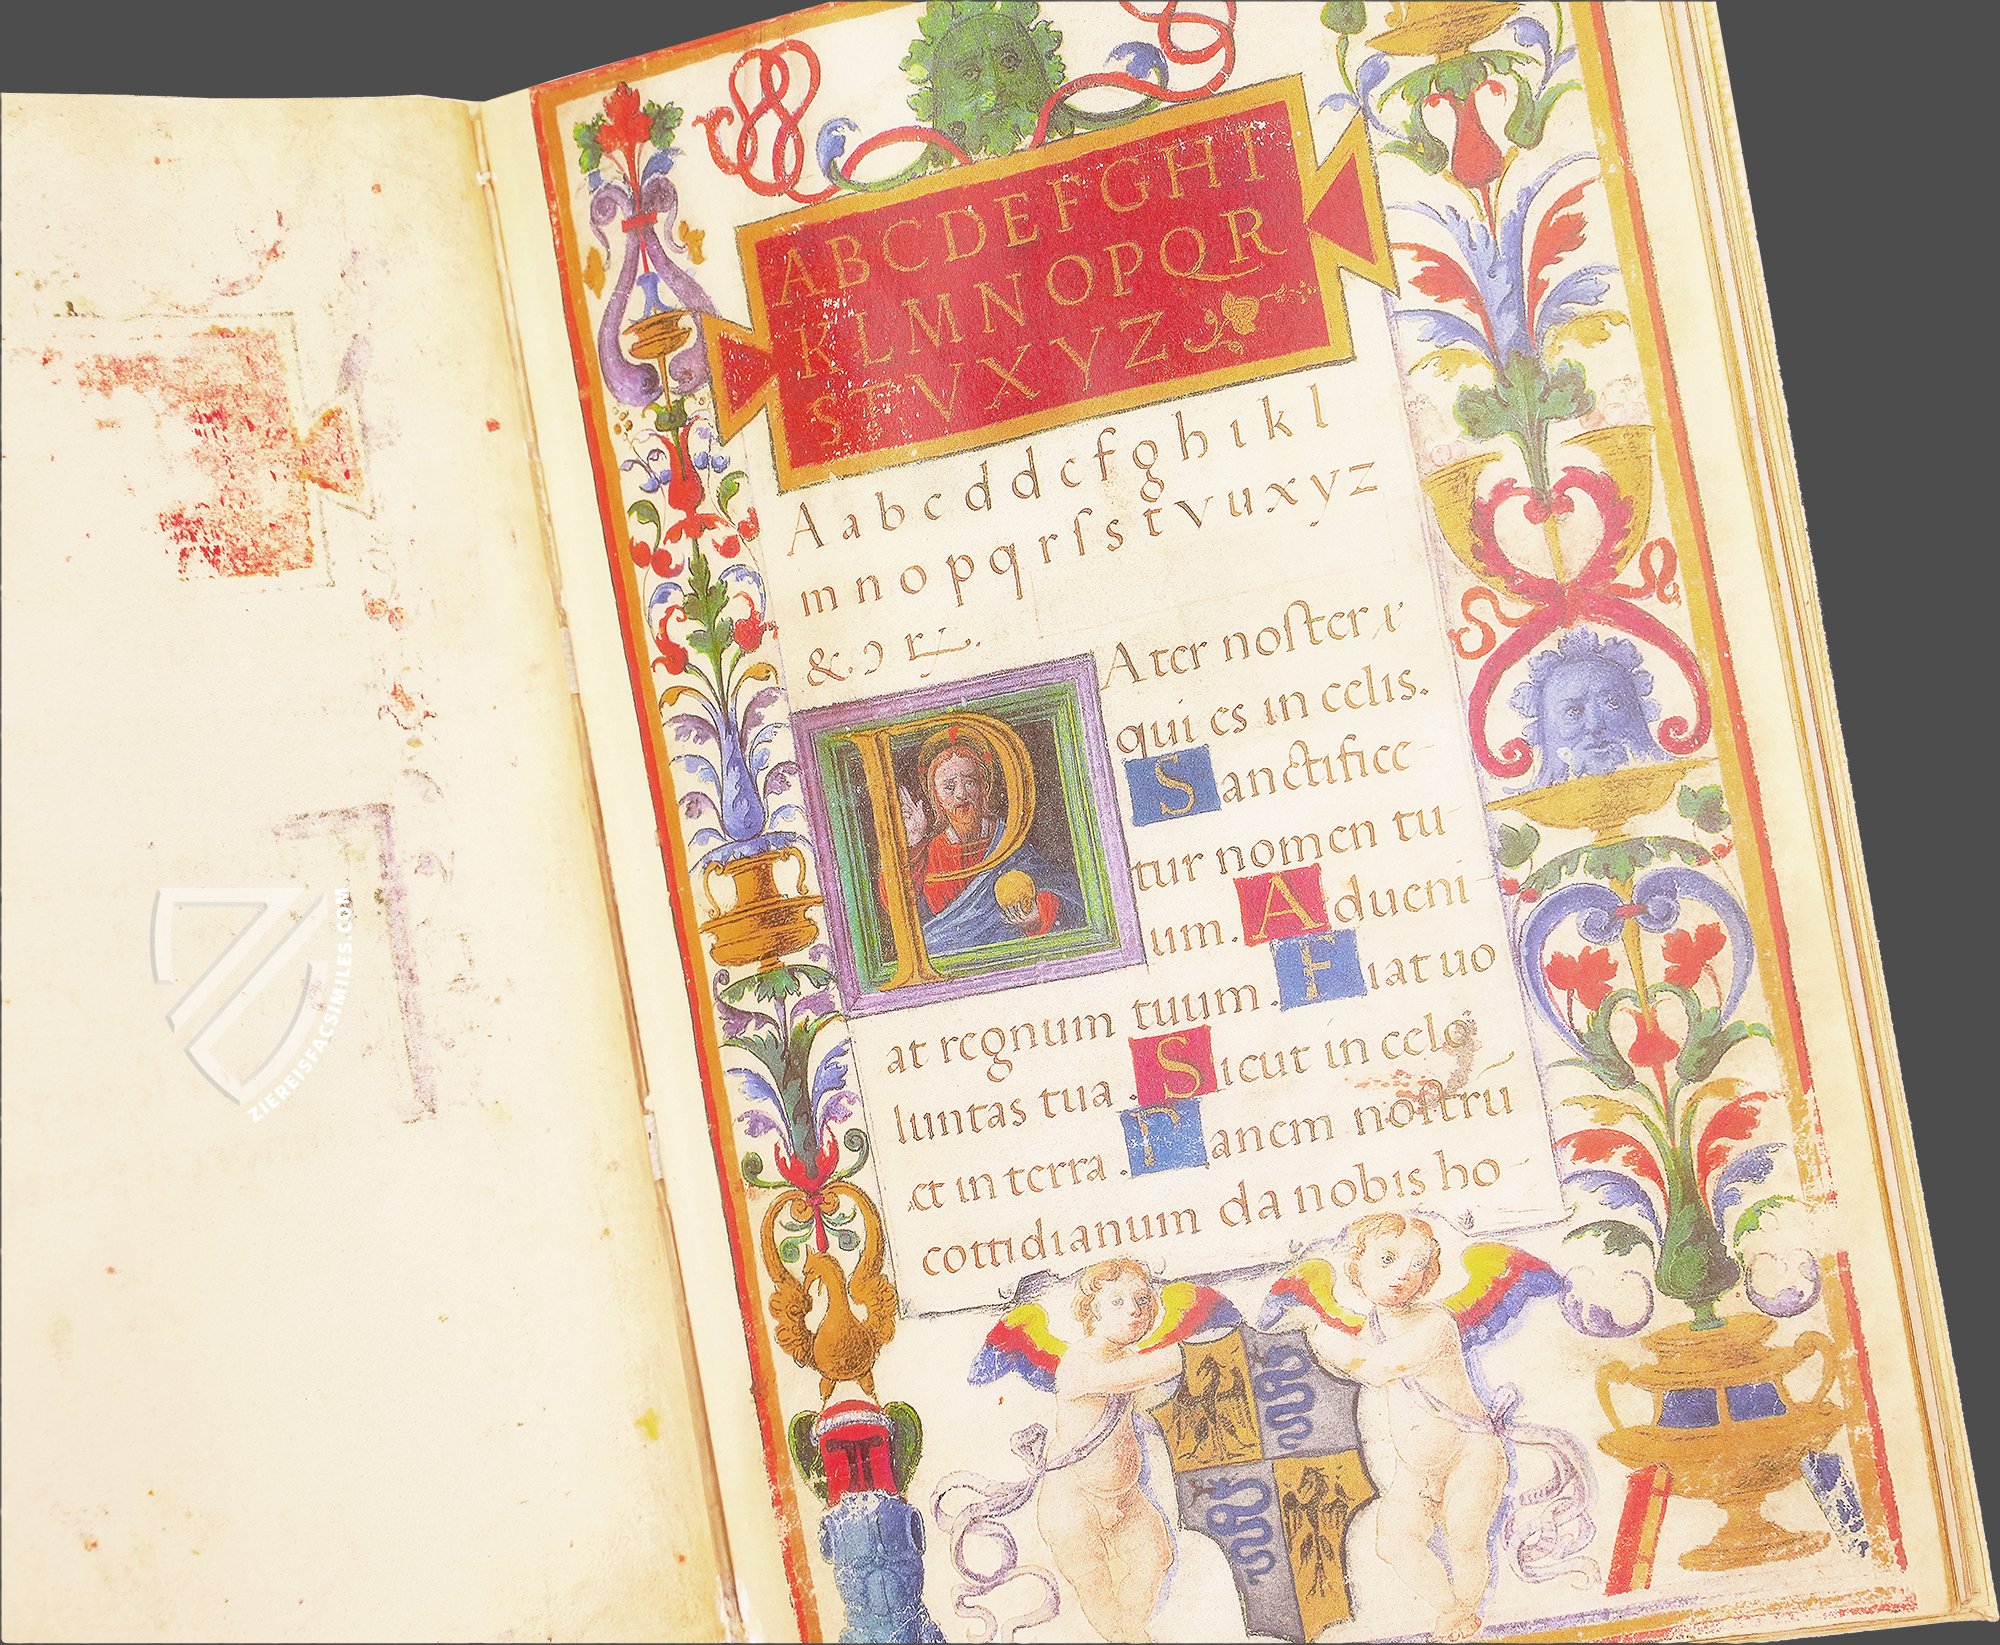 ABCDEFGHI
KLMNOPQR
STVXYZ
A a b c d d e f g h i k l
m n o p q r ſ s t v u x y z
&. ɔ
PAter noſter
qui es in celis.
Sanctifice-
tur nomen tu-
um. Adueni-
at regnum tuum. Fiat uo
luntas tua. Sicut in celo
et in terra. Panem noſtrū
cottidianum da nobis ho-
ZIEREISFACSIMILES.COM